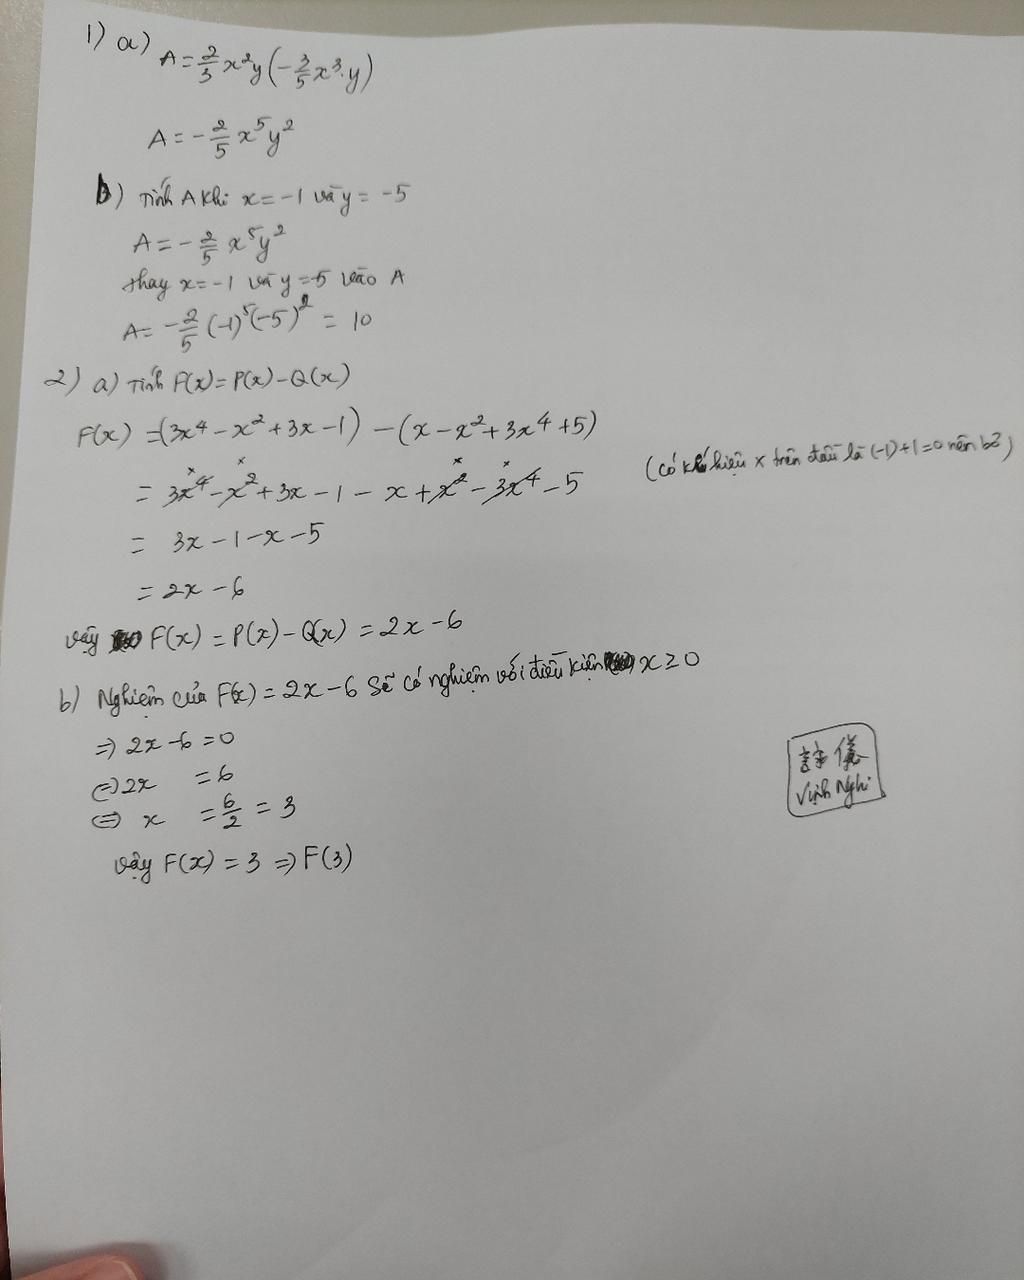 1) a) A = 2/3 x²y (-3/5 x³.y)
A = -2/5 x⁵y²
b) Tính A khi x = -1 và y = -5
A = -2/5 x⁵y²
thay x = -1 và y = -5 vào A
A = -2/5 (-1)⁵(-5)² = 10
2) a) Tính F(x) = P(x) - Q(x)
F(x) = (3x⁴ - x² + 3x - 1) - (x - x² + 3x⁴ + 5)
= 3x⁴ - x² + 3x - 1 - x + x² - 3x⁴ - 5 (có kí hiệu x trên đầu là (-1) + 1 = 0 nên bỏ)
= 3x - 1 - x - 5
= 2x - 6
vậy F(x) = P(x) - Q(x) = 2x - 6
b) Nghiệm của F(x) = 2x - 6 sẽ có nghiệm với điều kiện x ≥ 0
⇒ 2x - 6 = 0
⇔ 2x = 6
⇔ x = 6/2 = 3
vậy F(x) = 3 ⇒ F(3)
儀
Vịnh Nghi